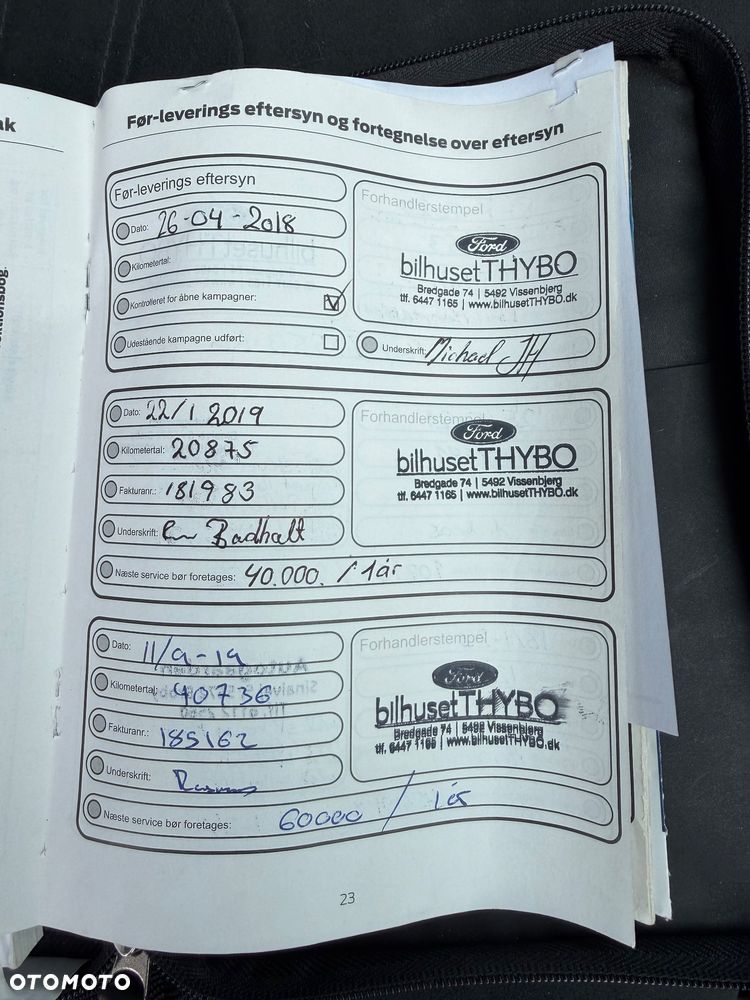 ak
ktionsbog.
Før-leverings eftersyn og fortegnelse over eftersyn
Før-leverings eftersyn
Dato: 26-04-2018
Kilometertal:
Kontrolleret for åbne kampagner:
Udestående kampagne udført:
Forhandlerstempel
Ford
bilhusetTHYBO
Bredgade 74 | 5492 Vissenbjerg
tlf. 6447 1165 | www.bilhusetTHYBO.dk
Underskrift: Michael JH
Dato: 22/1 2019
Kilometertal: 20875
Fakturanr.: 181983
Underskrift:
Næste service bør foretages: 40.000. / 1 år
Forhandlerstempel
Ford
bilhusetTHYBO
Bredgade 74 | 5492 Vissenbjerg
tlf. 6447 1165 | www.bilhusetTHYBO.dk
Dato: 11/9-19
Kilometertal: 40736
Fakturanr.: 185162
Underskrift:
Næste service bør foretages: 60000 / 1 år
Forhandlerstempel
Ford
bilhusetTHYBO
Bredgade 74 | 5492 Vissenbjerg
tlf. 6447 1165 | www.bilhusetTHYBO.dk
23
OTOMOTO